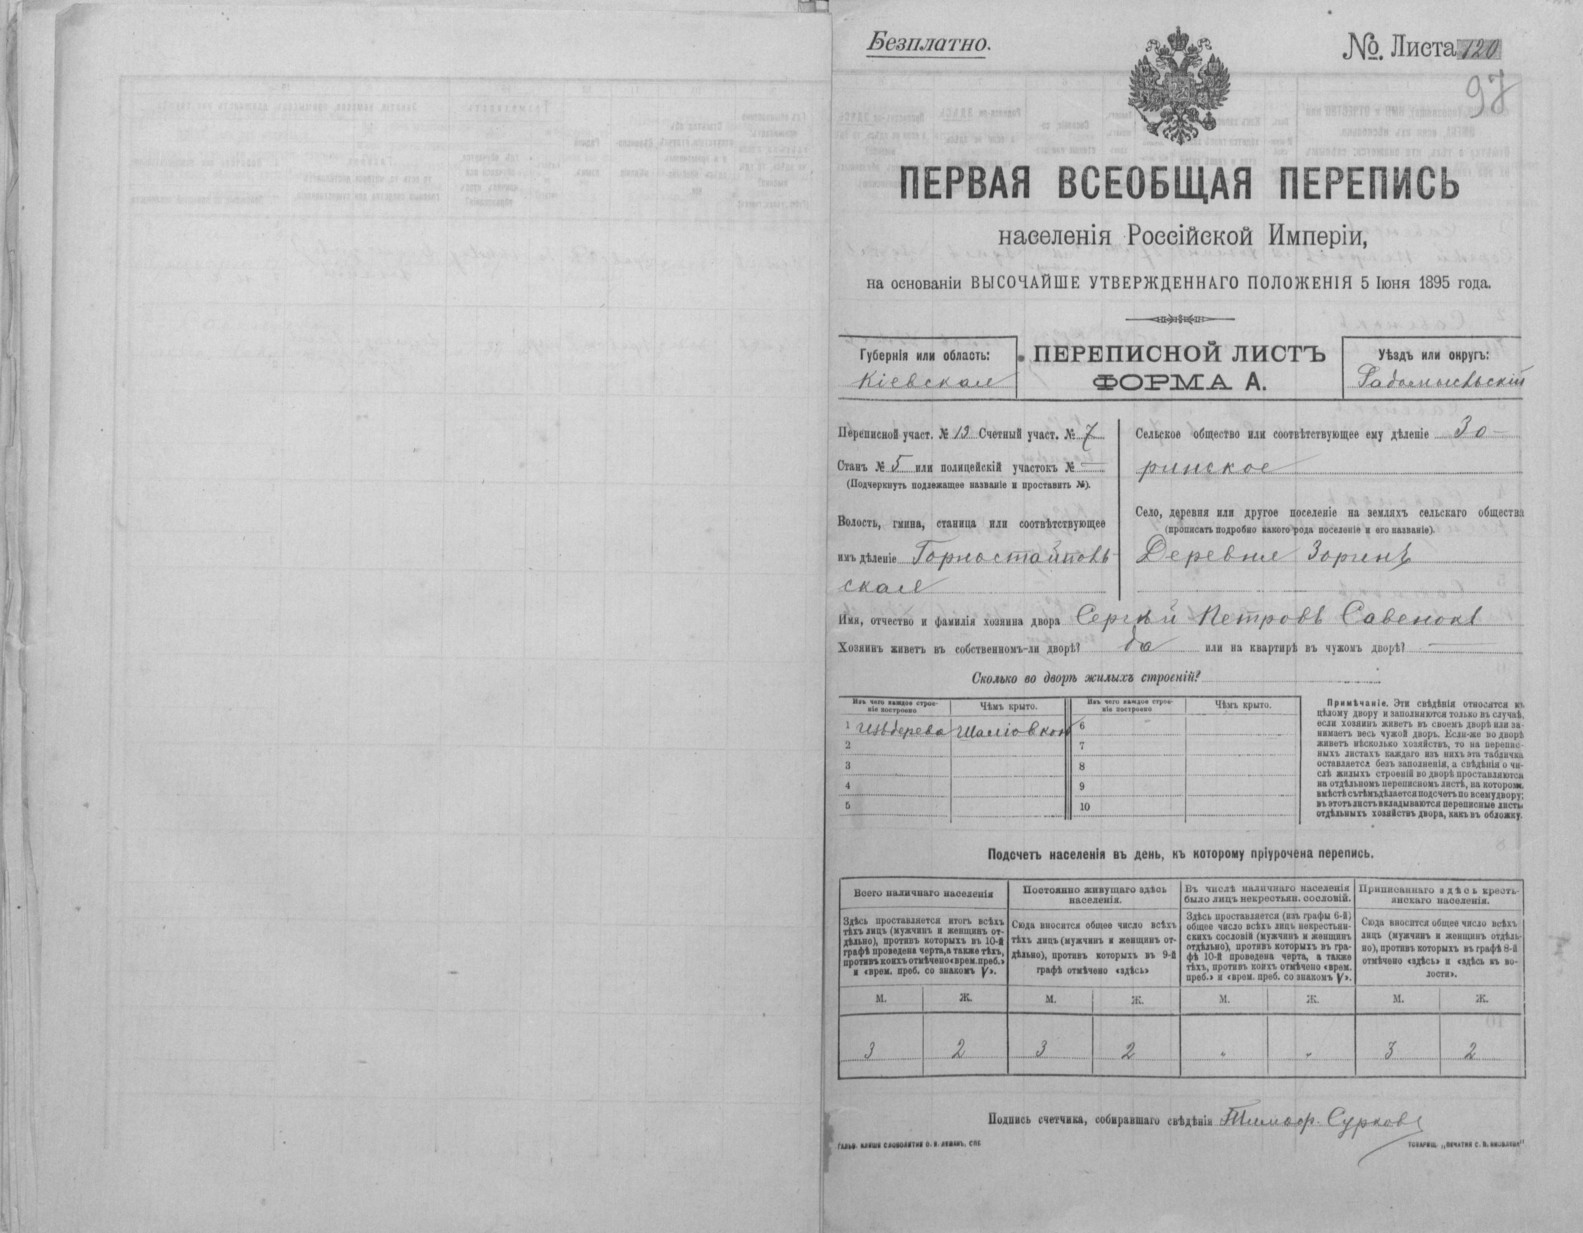 Безплатно.
№. Листа 120
97
ПЕРВАЯ ВСЕОБЩАЯ ПЕРЕПИСЬ
населенія Россійской Имперіи,
на основаніи ВЫСОЧАЙШЕ УТВЕРЖДЕННАГО ПОЛОЖЕНІЯ 5 Іюня 1895 года.
Губернія или область:
Кіевская
ПЕРЕПИСНОЙ ЛИСТЪ
ФОРМА А.
Уѣздъ или округъ:
Радомысльскій
Переписной участ. № 13 Счетный участ. № 7
Станъ № 5 или полицейскій участокъ № —
(Подчеркнуть подлежащее названіе и проставить №).
Волость, гмина, станица или соотвѣтствующее
имъ дѣленіе Горностайповь-
ская
Сельское общество или соотвѣтствующее ему дѣленіе Зо-
ринское
Село, деревня или другое поселеніе на земляхъ сельскаго общества
(прописать подробно какого рода поселеніе и его названіе).
Деревня Зоринъ
Имя, отчество и фамилія хозяина двора Сергѣй Петровъ Савенокъ
Хозяинъ живетъ въ собственномъ-ли дворѣ? да или на квартирѣ въ чужомъ дворѣ? —
Сколько во дворѣ жилыхъ строеній?
Изъ чего каждое строе-
ніе построено
Чѣмъ крыто.
Изъ чего каждое строе-
ніе построено
Чѣмъ крыто.
1 Изъ дерева
6
2
7
3
8
4
9
5
10
Примѣчаніе. Эти свѣдѣнія относятся къ
цѣлому двору и заполняются только въ случаѣ,
если хозяинъ живетъ въ своемъ дворѣ или за-
нимаетъ весь чужой дворъ. Если-же во дворѣ
живетъ нѣсколько хозяйствъ, то на перепис-
ныхъ листахъ каждаго изъ нихъ эта табличка
оставляется безъ заполненія, а свѣдѣнія о чи-
слѣ жилыхъ строеній во дворѣ проставляются
на отдѣльномъ переписномъ листѣ, на которомъ
вмѣстѣ съ тѣмъ дѣлается подсчетъ по всему двору;
въ этотъ листъ вкладываются переписные листы
отдѣльныхъ хозяйствъ двора, какъ въ обложку.
Подсчетъ населенія въ день, къ которому пріурочена перепись.
Всего наличнаго населенія
Здѣсь проставляется итогъ всѣхъ
тѣхъ лицъ (мужчинъ и женщинъ от-
дѣльно), противъ которыхъ въ 10-й
графѣ проведена черта, а также тѣхъ,
противъ коихъ отмѣчено «врем. преб.»
и «врем. преб. со знакомъ V».
Постоянно живущаго здѣсь
населенія.
Сюда вносится общее число всѣхъ
тѣхъ лицъ (мужчинъ и женщинъ от-
дѣльно), противъ которыхъ въ 9-й
графѣ отмѣчено «здѣсь»
Въ числѣ наличнаго населенія
было лицъ некрестьян. сословій.
Здѣсь проставляется (изъ графы 6-й)
общее число всѣхъ лицъ некрестьян-
скихъ сословій (мужчинъ и женщинъ
отдѣльно), противъ которыхъ въ гра-
фѣ 10-й проведена черта, а также
тѣхъ, противъ коихъ отмѣчено «врем.
преб.» и «врем. преб. со знакомъ V».
Приписаннаго здѣсь кресть-
янскаго населенія.
Сюда вносится общее число всѣхъ
лицъ (мужчинъ и женщинъ отдѣль-
но), противъ которыхъ въ графѣ 8-й
отмѣчено «здѣсь» и «здѣсь въ во-
лости».
М. Ж. М. Ж. М. Ж. М. Ж.
3 2 3 2 „ „ 3 2
Подпись счетчика, собиравшаго свѣдѣнія Тимоф. Сурковъ